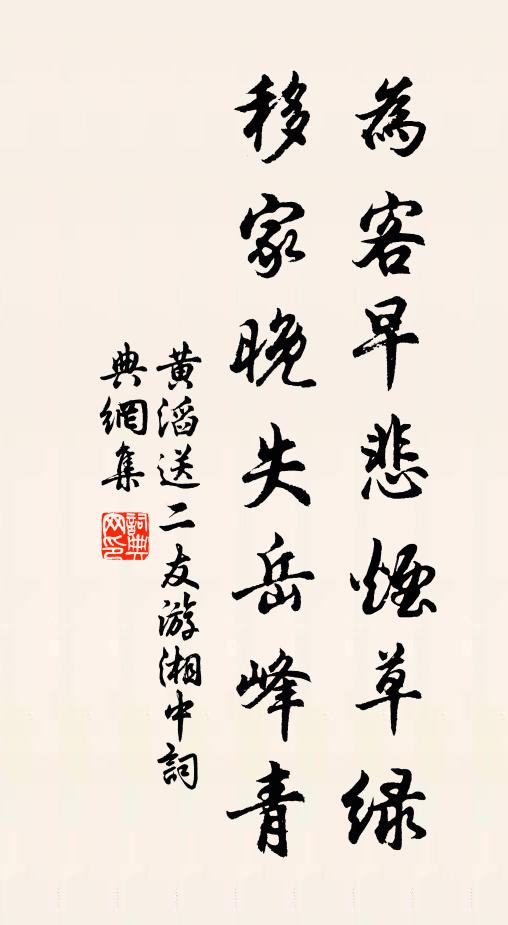 為客早悲煙草绿
移家晚失岳峰青
黄滔送二友游湘中詞
典網集
詞典網印